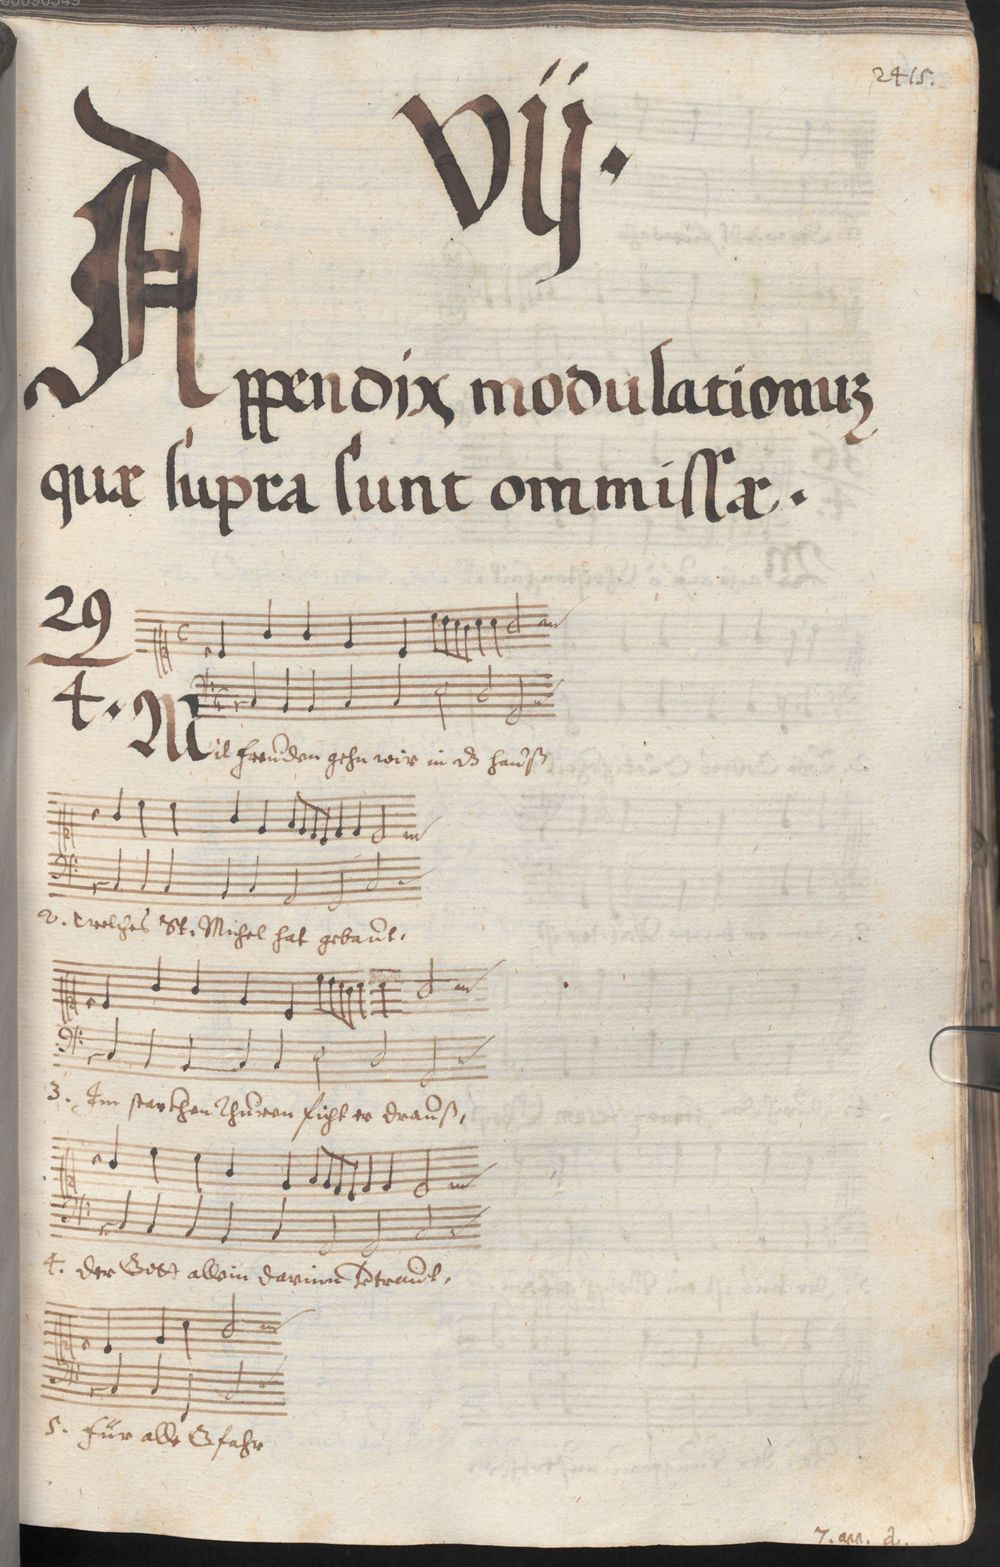 2415.
Vij.
Appendix modulationuʒ
quæ supra sunt ommissæ.
29
4.
Mit freuden gehn wir in dʒ hauß
2. welches St. Michel hat gebaut,
3. Im starckhen Thuren sicht er drauß,
4. der Gott allein darinn vertraut,
5. Für alle Gfahr
7. app. a.